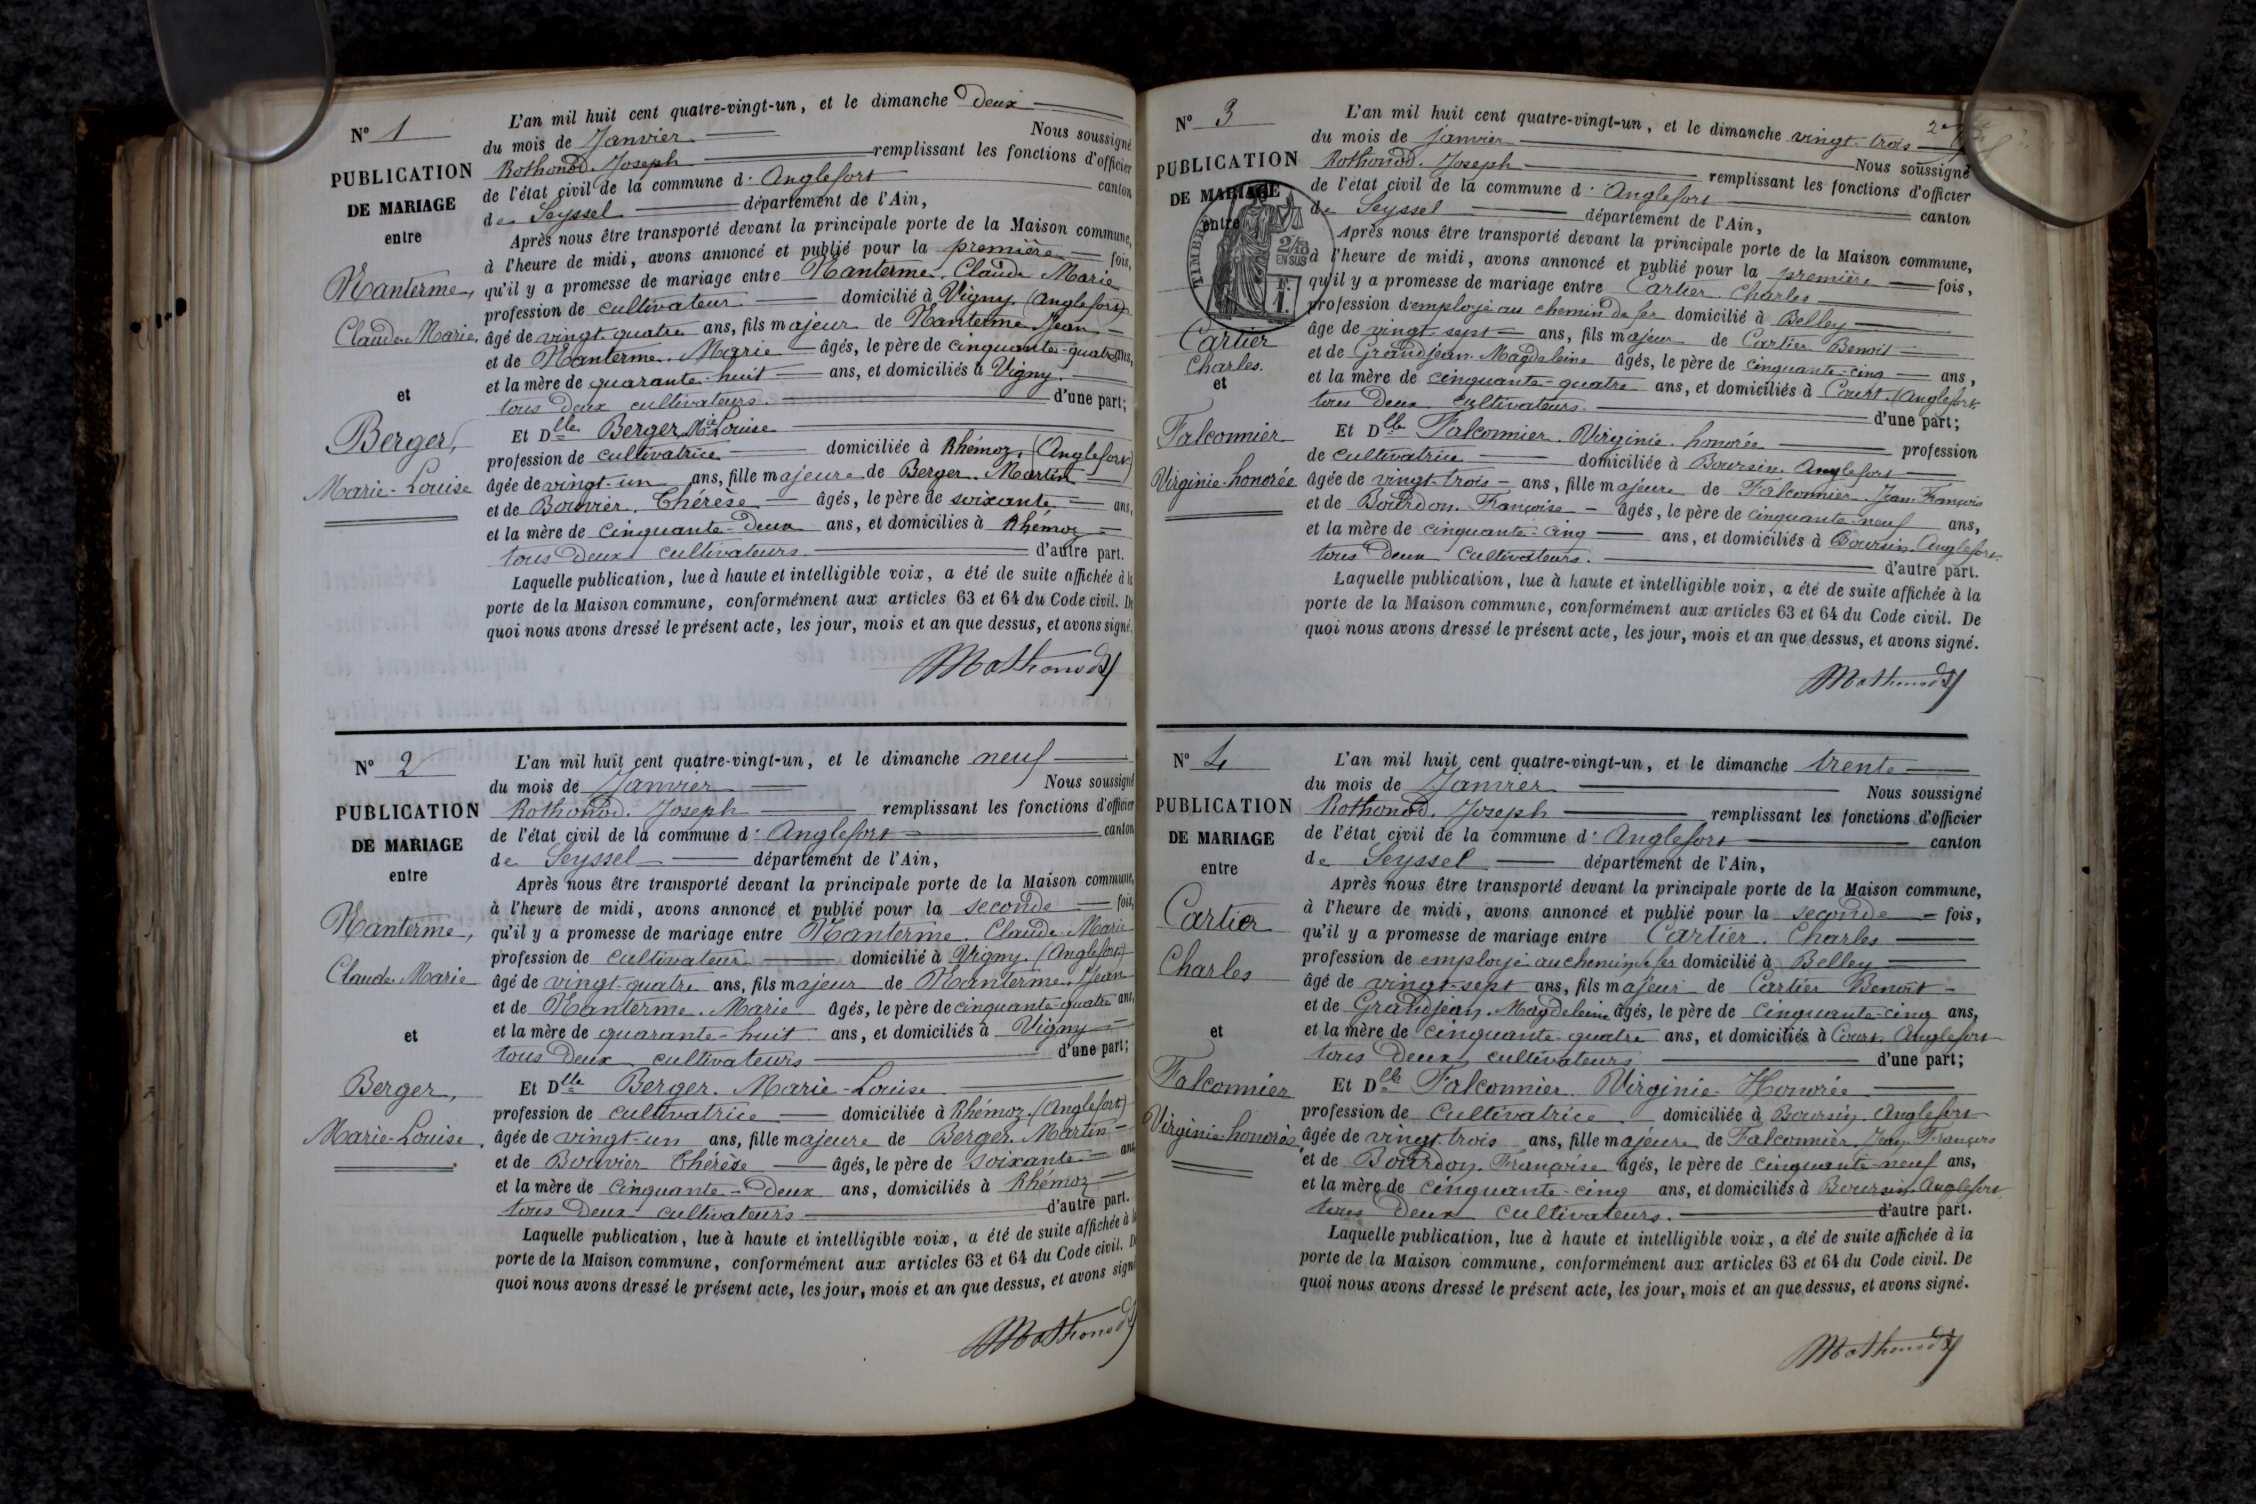 N° 1
PUBLICATION
DE MARIAGE
entre
Nanterme,
Claude Marie
et
Berger,
Marie-Louise
L'an mil huit cent quatre-vingt-un, et le dimanche Deux
du mois de Janvier Nous soussigné
Rothonod. Joseph remplissant les fonctions d'officier
de l'état civil de la commune d' Anglefort canton
de Seyssel département de l'Ain,
Après nous être transporté devant la principale porte de la Maison commune,
à l'heure de midi, avons annoncé et publié pour la première fois,
qu'il y a promesse de mariage entre Nanterme. Claude Marie
profession de cultivateur domicilié à Vigny (Anglefort)
âgé de vingt quatre ans, fils majeur de Nanterme Jean
et de Nanterme. Marie âgés, le père de cinquante-quatre ans,
et la mère de quarante-huit ans, et domiciliés à Vigny.
tous Deux cultivateurs. d'une part;
Et Dlle Berger Mie Louise
profession de cultivatrice domiciliée à Rhémoz. (Anglefort)
âgée de vingt-un ans, fille majeure de Berger. Martin
et de Bouvier. Thérèse âgés, le père de soixante ans,
et la mère de cinquante-Deux ans, et domiciliés à Rhémoz
tous Deux cultivateurs. d'autre part.
Laquelle publication, lue à haute et intelligible voix, a été de suite affichée à la
porte de la Maison commune, conformément aux articles 63 et 64 du Code civil. De
quoi nous avons dressé le présent acte, les jour, mois et an que dessus, et avons signé.
N° 2
PUBLICATION
DE MARIAGE
entre
Nanterme,
Claude Marie
et
Berger,
Marie-Louise.
L'an mil huit cent quatre-vingt-un, et le dimanche neuf
du mois de Janvier Nous soussigné
Rothonod. Joseph remplissant les fonctions d'officier
de l'état civil de la commune d' Anglefort canton
de Seyssel département de l'Ain,
Après nous être transporté devant la principale porte de la Maison commune,
à l'heure de midi, avons annoncé et publié pour la seconde fois,
qu'il y a promesse de mariage entre Nanterme. Claude Marie
profession de cultivateur domicilié à Vigny. (Anglefort)
âgé de vingt-quatre ans, fils majeur de Nanterme. Jean
et de Nanterme. Marie âgés, le père de cinquante-quatre ans,
et la mère de quarante-huit ans, et domiciliés à Vigny
tous Deux cultivateurs d'une part;
Et Dlle Berger. Marie-Louise
profession de cultivatrice domiciliée à Rhémoz. (Anglefort)
âgée de vingt-un ans, fille majeure de Berger. Martin
et de Bouvier Thérèse âgés, le père de soixante ans
et la mère de cinquante-Deux ans, domiciliés à Rhémoz
tous Deux cultivateurs d'autre part.
Laquelle publication, lue à haute et intelligible voix, a été de suite affichée à la
porte de la Maison commune, conformément aux articles 63 et 64 du Code civil. D
quoi nous avons dressé le présent acte, les jour, mois et an que dessus, et avons signé
N° 3
PUBLICATION
DE MARIAGE
entre
TIMBRE
2/10
EN SUS
F.
1.
Cartier
Charles.
et
Falconnier
Virginie-honorée
L'an mil huit cent quatre-vingt-un, et le dimanche vingt-trois
du mois de janvier Nous soussigné
Rothonod. Joseph remplissant les fonctions d'officier
de l'état civil de la commune d' Anglefort canton
de Seyssel département de l'Ain,
Après nous être transporté devant la principale porte de la Maison commune,
à l'heure de midi, avons annoncé et publié pour la première fois,
qu'il y a promesse de mariage entre Cartier. Charles
profession d'employé au chemin de fer domicilié à Belley
âgé de vingt-sept ans, fils majeur de Cartier Benoit
et de Grandjean. Magdeleine âgés, le père de cinquante-cinq ans,
et la mère de cinquante-quatre ans, et domiciliés à Court. (Anglefort.
tous Deux cultivateurs. d'une part;
Et Dlle Falconnier. Virginie. honorée profession
de cultivatrice domiciliée à Boursin. Anglefort
âgée de vingt-trois ans, fille majeure de Falconnier. Jean François
et de Bourdon. Françoise âgés, le père de cinquante-neuf ans,
et la mère de cinquante-cinq ans, et domiciliés à Boursin. Anglefort.
tous Deux cultivateurs. d'autre part.
Laquelle publication, lue à haute et intelligible voix, a été de suite affichée à la
porte de la Maison commune, conformément aux articles 63 et 64 du Code civil. De
quoi nous avons dressé le présent acte, les jour, mois et an que dessus, et avons signé.
N° 4
PUBLICATION
DE MARIAGE
entre
Cartier
Charles
et
Falconnier
Virginie-honorée
L'an mil huit cent quatre-vingt-un, et le dimanche trente
du mois de Janvier Nous soussigné
Rothonod. Joseph remplissant les fonctions d'officier
de l'état civil de la commune d' Anglefort canton
de Seyssel département de l'Ain,
Après nous être transporté devant la principale porte de la Maison commune,
à l'heure de midi, avons annoncé et publié pour la seconde fois,
qu'il y a promesse de mariage entre Cartier. Charles
profession de employé au chemin de fer domicilié à Belley
âgé de vingt-sept ans, fils majeur de Cartier Benoît
et de Grandjean. Magdeleine âgés, le père de cinquante-cinq ans,
et la mère de cinquante-quatre ans, et domiciliés à Court Anglefort
tous Deux cultivateurs d'une part;
Et Dlle Falconnier Virginie-Honorée
profession de Cultivatrice domiciliée à Boursin. Anglefort
âgée de vingt-trois ans, fille majeure de Falconnier. Jean François
et de Bourdon. Françoise âgés, le père de cinquante-neuf ans,
et la mère de cinquante-cinq ans, et domiciliés à Boursin. Anglefort
tous Deux cultivateurs. d'autre part.
Laquelle publication, lue à haute et intelligible voix, a été de suite affichée à la
porte de la Maison commune, conformément aux articles 63 et 64 du Code civil. De
quoi nous avons dressé le présent acte, les jour, mois et an que dessus, et avons signé.